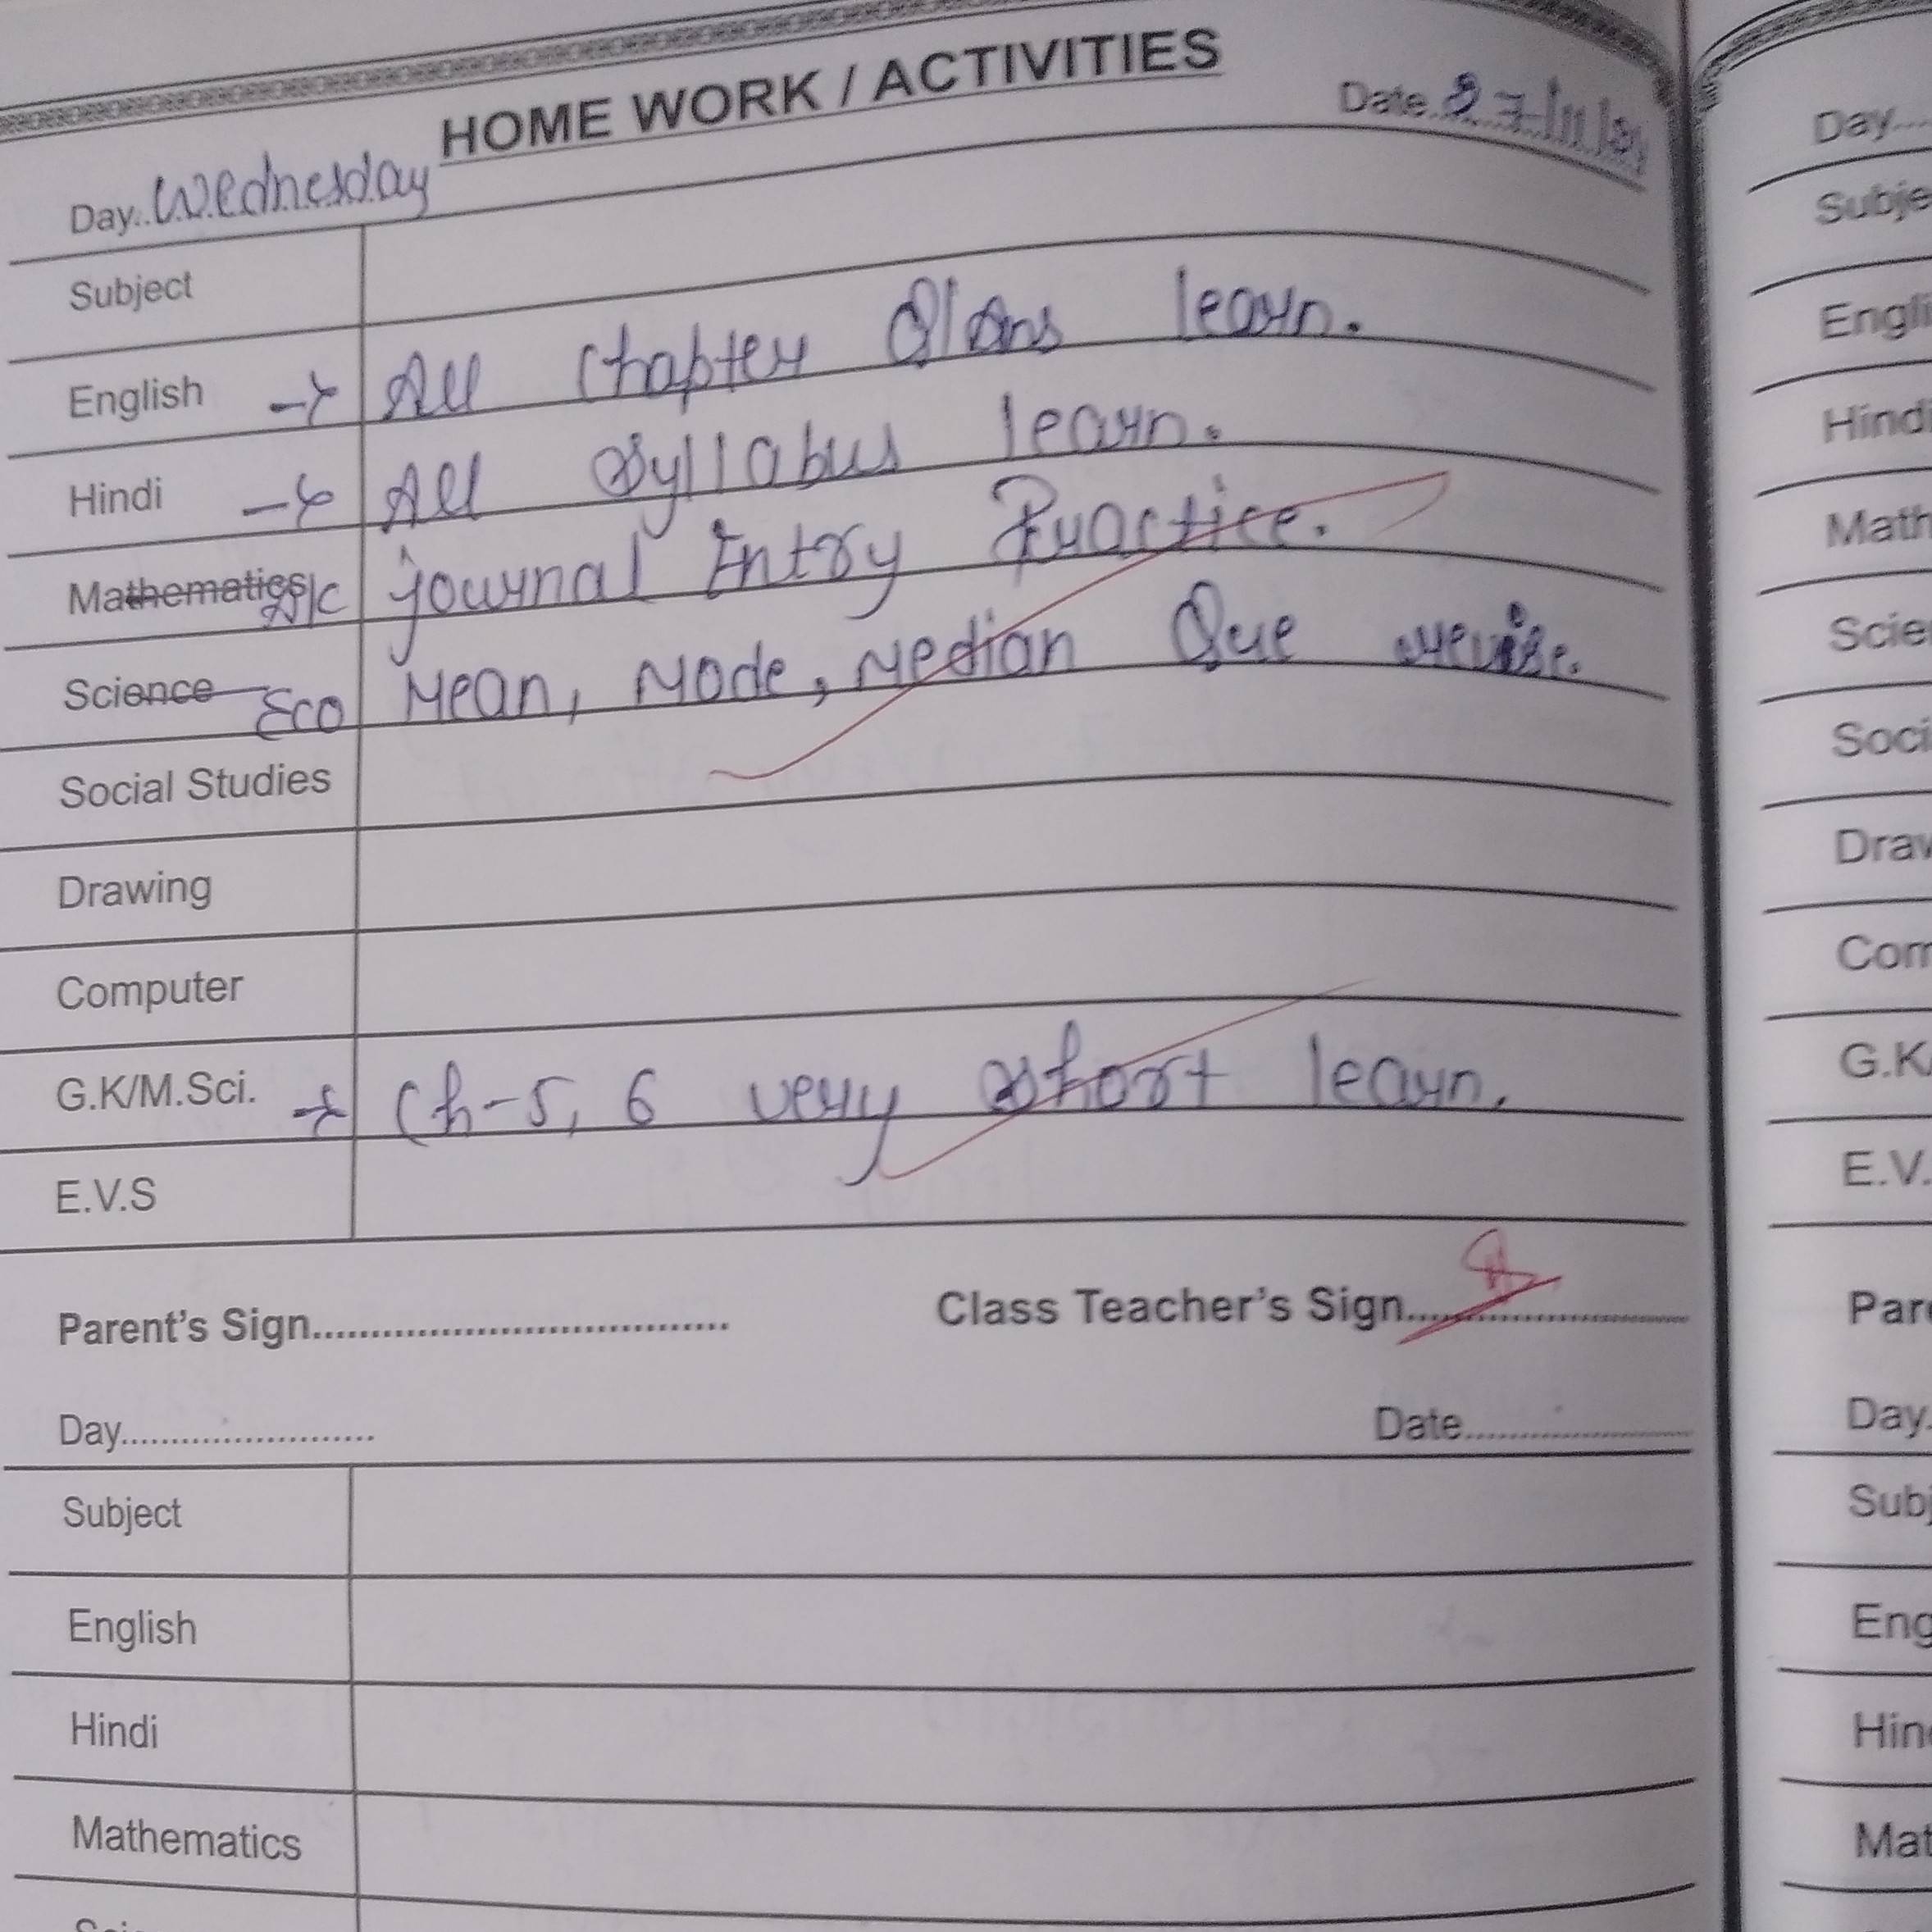 HOME WORK / ACTIVITIES
Day..Wednesday Date..27/11/24
Subject
English → All Chapter Q/Ans learn.
Hindi → All Syllabus learn.
Mathematics A/c journal Entry Practice.
Science Eco Mean, Mode, Median Que revise.
Social Studies
Drawing
Computer
G.K/M.Sci. → Ch-5, 6 very short learn.
E.V.S
Parent's Sign.................................... Class Teacher's Sign........................
Day.......................... Date....................
Subject
English
Hindi
Mathematics
Day....
Subje
Engli
Hindi
Math
Scie
Soci
Draw
Com
G.K/
E.V.
Par
Day.
Subj
Eng
Hin
Mat